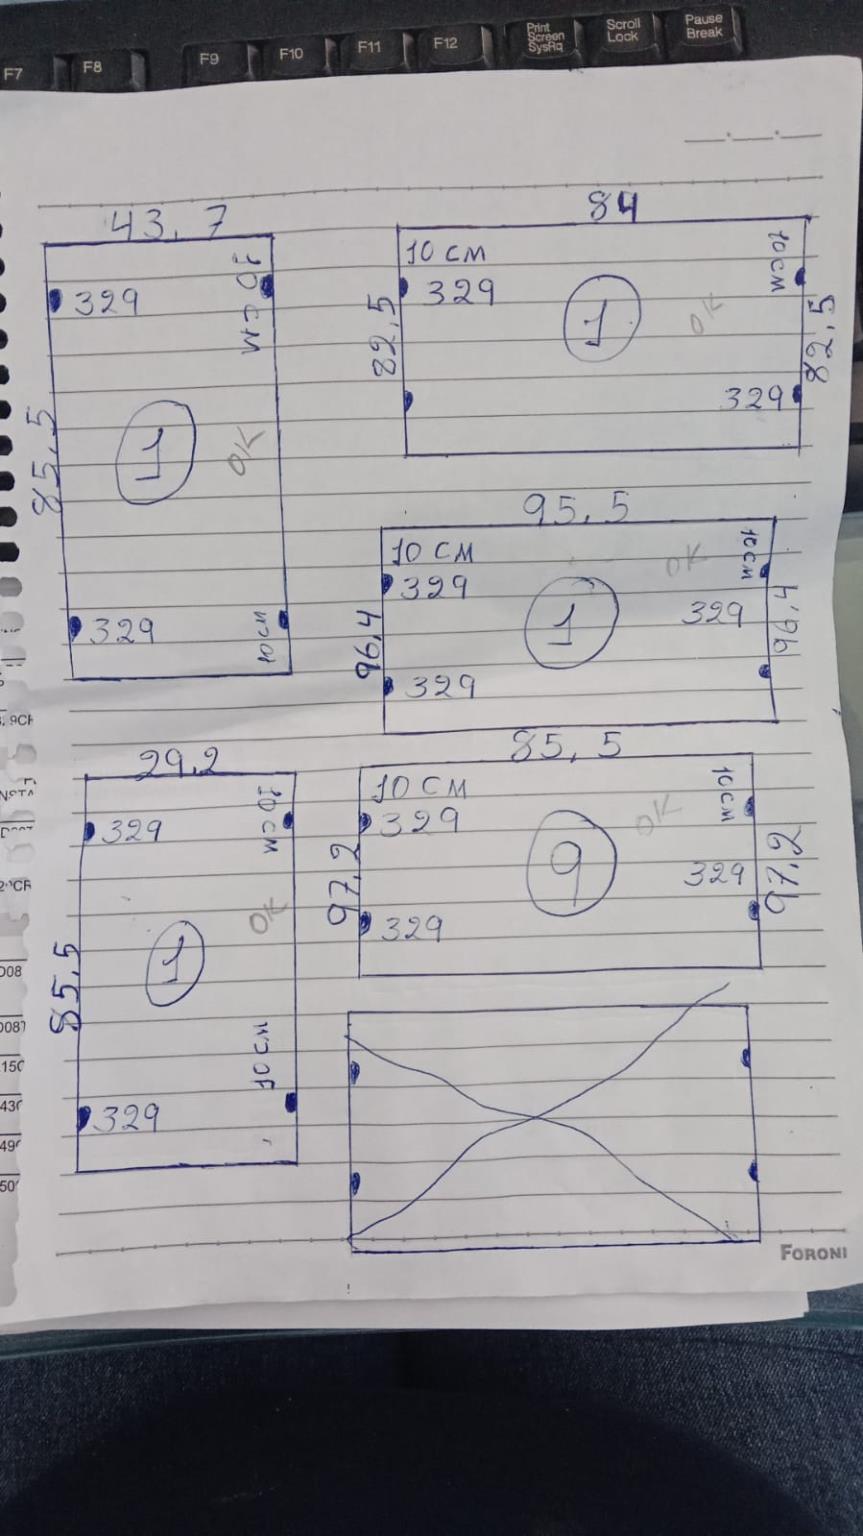 Print
Screen
SysRq
Scroll
Lock
Pause
Break
F7
F8
F9
F10
F11
F12
43,7
10 CM
329
85,5
1
OK
329
10 CM
84
10 CM
10 CM
329
82,5
1
OK
82,5
329
95,5
10 CM
10 CM
OK
329
1
329
96,4
96,4
329
29,2
10 CM
329
OK
1
85,5
10 CM
329
85,5
10 CM
10 CM
329
OK
97,2
9
329
97,2
329
FORONI